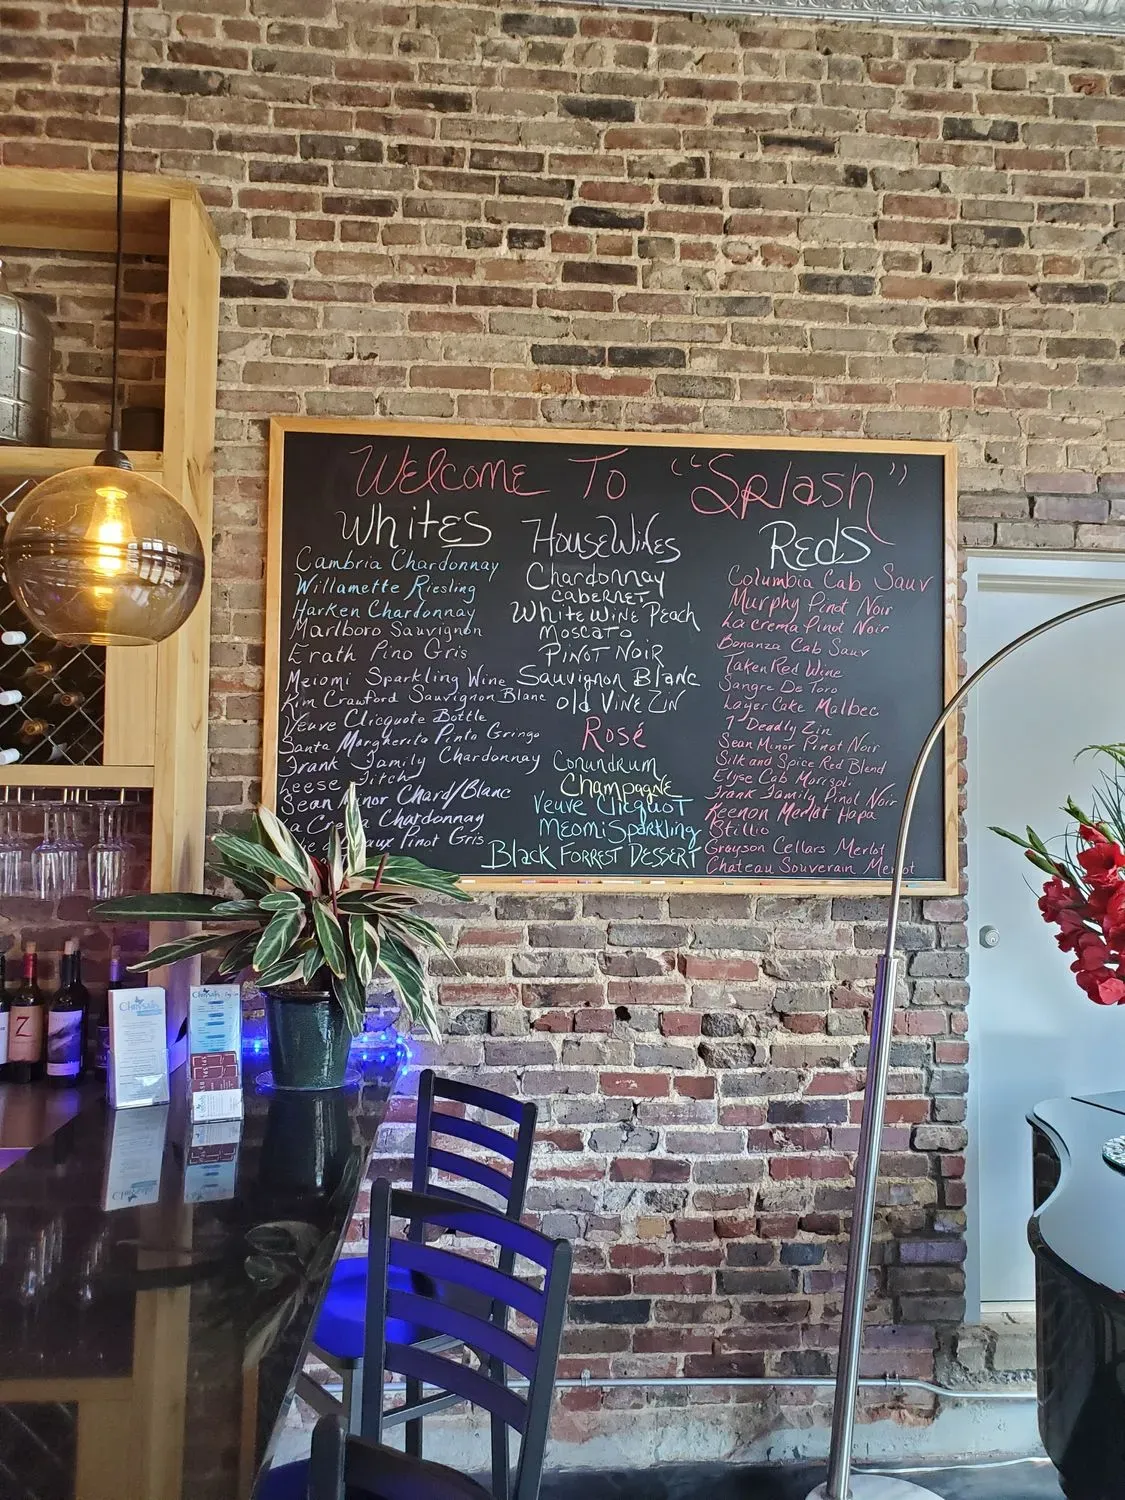 Welcome To "Splash"
Whites
Cambria Chardonnay
Willamette Riesling
Harken Chardonnay
Marlboro Sauvignon
Erath Pino Gris
Meiomi Sparkling Wine
Kim Crawford Sauvignon Blanc
Veuve Clicquote Bottle
Santa Margherita Pinto Gringo
Frank Family Chardonnay
Leese Fitch
Sean Minor Chard/Blanc
Crema Chardonnay
Pinot Gris
House Wines
Chardonnay
Cabernet
White Wine Peach
Moscato
Pinot Noir
Sauvignon Blanc
Old Vine Zin
Rosé
Conundrum
Champagne
Veuve Clicquot
Meomi Sparkling
Black Forrest Dessert
Reds
Columbia Cab Sauv
Murphy Pinot Noir
La Crema Pinot Noir
Bonanza Cab Sauv
Taken Red Wine
Sangre De Toro
Layer Cake Malbec
7 Deadly Zin
Sean Minor Pinot Noir
Silk and Spice Red Blend
Cab
Frank Family Pinot Noir
Keenon Merlot Napa
Grayson Cellars Merlot
Chateau Souverain Merlot
Chrysalis
Z